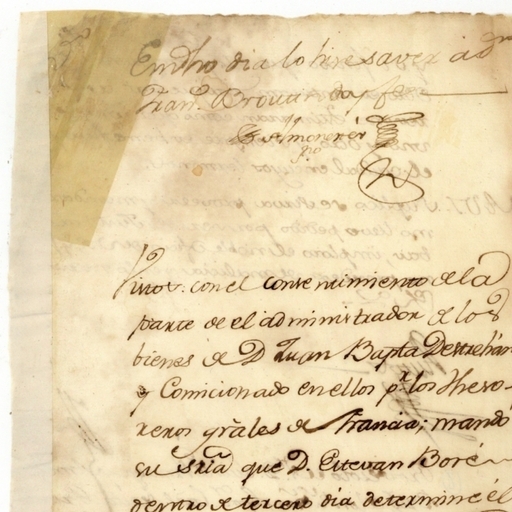 En dho dia lo hise saver a dn
Fran.co Brouar doy fe
Vistos: con el consentimiento de la
parte de el administrador de los
bienes de D. Juan Bapta Destrehan
y Comicionado en ellos pr. los Theso-
reros grales de Francia; mando
su sria que D. Estevan Boré
dentro de tercero dia determine el